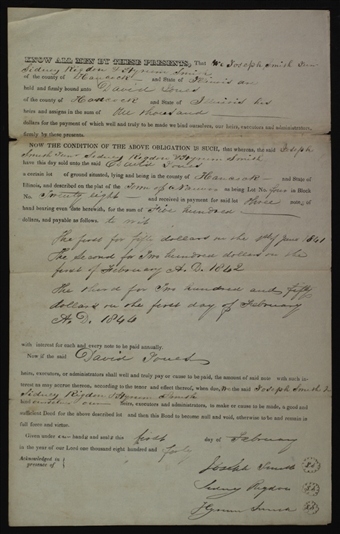 KNOW ALL MEN BY THESE PRESENTS, That We Joseph Smith Jun
Sidney Rigdon & Hyrum Smith
of the county of Hancock and State of Illinois are
held and firmly bound unto David Jones
of the county of Hancock and State of Illinois his
heirs and assigns in the sum of One thousand
dollars, for the payment of which well and truly to be made we bind ourselves, our heirs, executors and administrators,
firmly by these presents.
NOW THE CONDITION OF THE ABOVE OBLIGATION IS SUCH, that whereas, the said Joseph
Smith Jun Sidney Rigdon & Hyrum Smith
have this day sold unto the said David Jones
a certain lot of ground situated, lying and being in the county of Hancock and State of
Illinois, and described on the plot of the Town of Nauvoo as being Lot No. four in Block
No. Twenty eight and received in payment for said lot three notes of
hand bearing even date herewith, for the sum of Five hundred
dollars, and payable as follows to wit
The first for fifty dollars on the 1st of June 1841
The Second for Two hundred dollars on the
first of February A.D. 1842
The third for Two hundred and fifty
dollars on the first day of February
A.D. 1844
with interest for each and every note to be paid annually.
Now if the said David Jones
heirs, executors, or administrators shall well and truly pay or cause to be paid, the amount of said notes with such in-
terest as may accrue thereon, according to the tenor and effect thereof, when due, & the said Joseph Smith Jr
Sidney Rigdon & Hyrum Smith
our heirs, executors and administrators, to make or cause to be made, a good and
sufficient Deed for the above described lot and then this Bond to become null and void, otherwise to be and remain in
full force and virtue.
Given under our hands and seals this first day of February
in the year of our Lord one thousand eight hundred and forty
Acknowledged in
presence of
Joseph Smith
Sidney Rigdon
Hyrum Smith